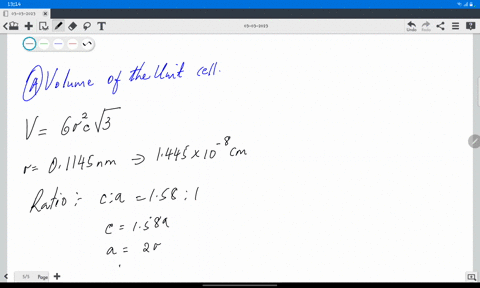 13:14
03-03-2023
03-03-2023
(A) Volume of the Unit cell.
V = 6r²c√3
r = 0.1145nm ⇒ 1.445×10⁻⁸ cm
Ratio:- c:a = 1.58 : 1
c = 1.58a
a = 2r
5/5 Page